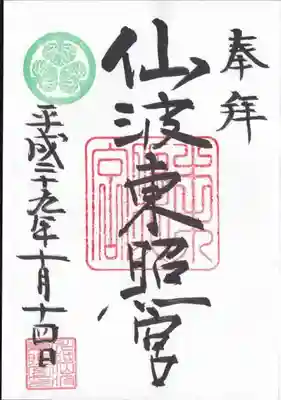 奉拜
仙波東照宮
平成二十九年
十月十四日